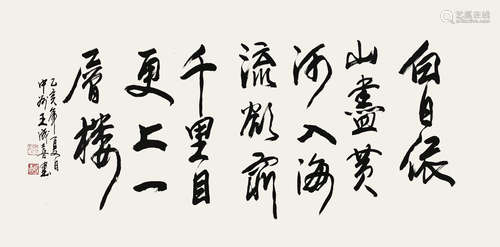 白日依
山盡黃
河入海
流欲窮
千里目
更上一
層樓
乙亥年夏月
中州王成喜書
艺狐在线